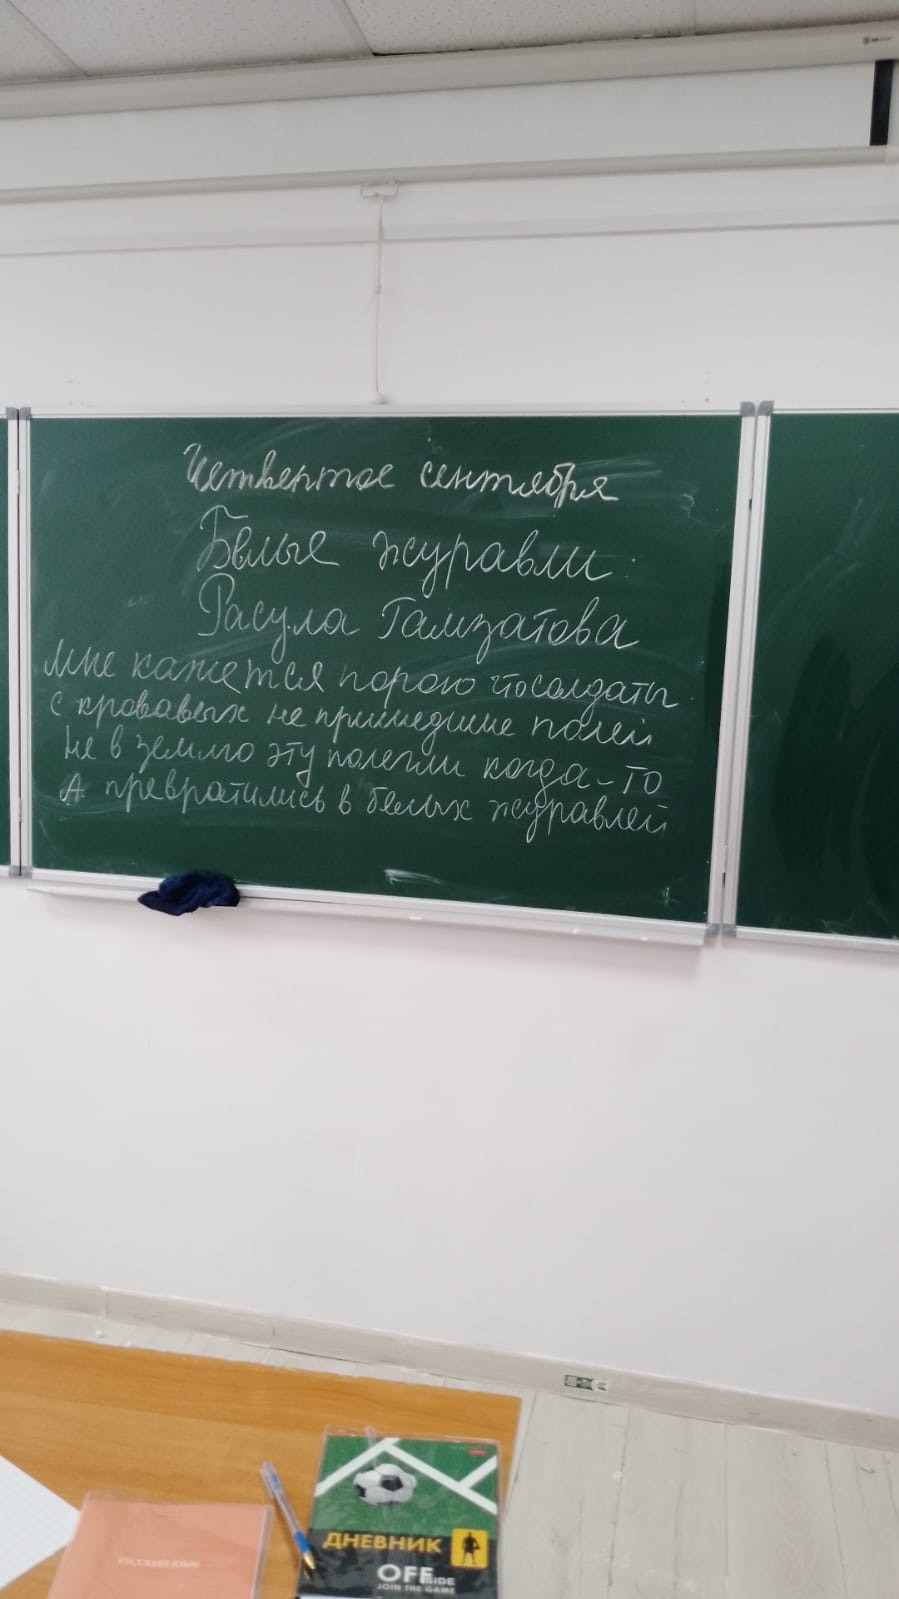 Четвертое сентября
Белые журавли
Расула Гамзатова
Мне кажется порою что солдаты
с кровавых не пришедшие полей
Не в землю эту полегли когда-то
А превратились в белых журавлей
РУССКИЙ ЯЗЫК
ДНЕВНИК
OFFSIDE
JOIN THE GAME